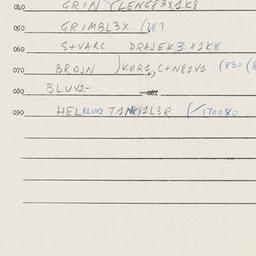 040 GRIN YLENG83X1K8
050 GRIMBL3X (287
060 S+VARC DRAJEK3.X1K8
070 BROJN )KOR1,,C+N81V1 (830 (8
080 BLUV2-
090 HELBLUV2 (/170080